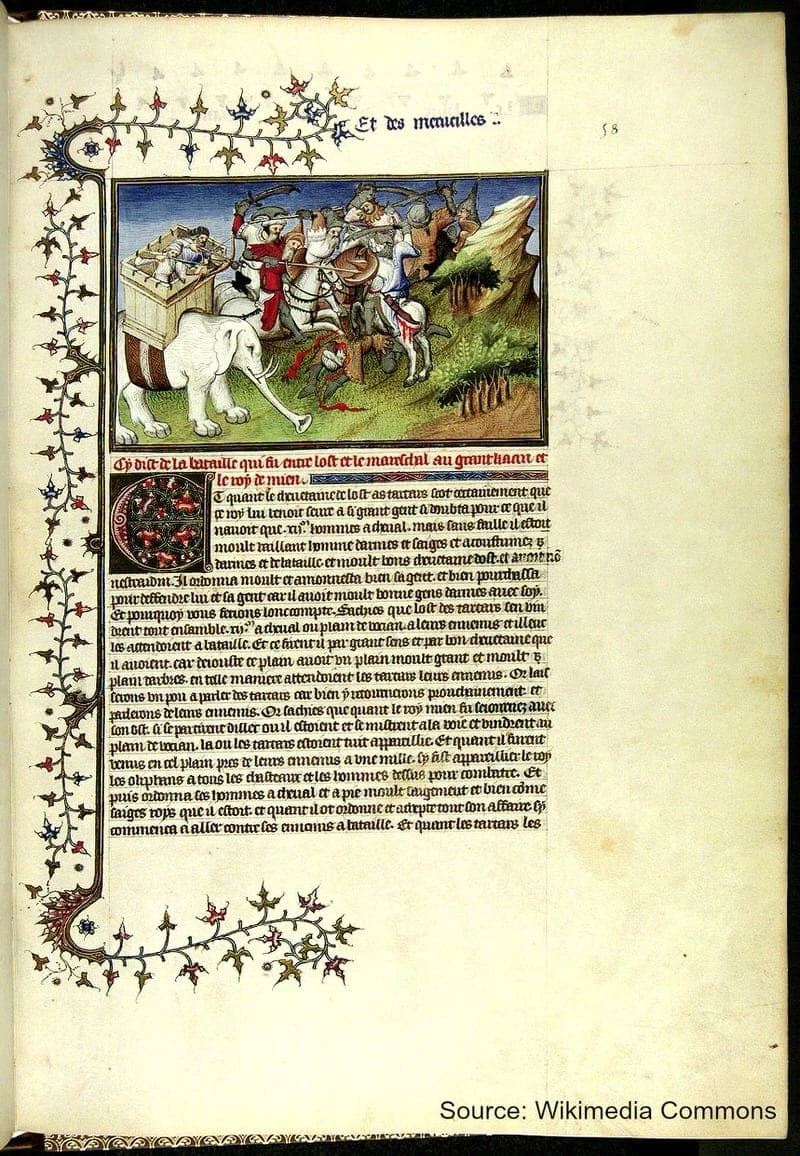 Et des merveilles
58
Cy dist de la bataille qui fu entre lost et le mareschal au grant kaan et
le roy de mien.
Et quant le chevetaine de lost as tartars scot certainement que
ce roy lui venoit seure a si grant gent si doubta pour ce que il
navoit que .xij.ᵐ hommes a cheval. mais sans faille il estoit
moult vaillant homme darmes et saiges et acoustumez
darmes et de bataille et moult bons chevetaine dost. et
Il ordonna moult et amonnesta bien sa gent. et bien pourchassa
pour deffendre lui et sa gent car il avoit moult bonne gens darmes avec soy.
Et pourquoy vous ferons loncompte. Sachies que lost des tartars sen vin
drent tout ensamble .xij.ᵐ a cheval ou plain de vocian. a leurs ennemis et illeuc
les attendoient a bataille. Et ce firent il par grant sens et par bon chevetaine que
il avoient. car dejouste ce plain avoit vn plain moult grant et moult
plain darbres. en telle maniere attendoient les tartars leurs ennemis. Or lais
serons vn pou a parler des tartars car bien y retournerons prouchainement. et
parlerons de leurs ennemis. Or sachies que quant le roy mien fu seiornez avec
son ost. si se partirent dillec ou il estoient et se mistrent a la voie et vindrent au
plain de vocian. la ou les tartars estoient tuit appareillie. Et quant il furent
venus en cel plain pres de leurs ennemis a vne mille. sy fist appareillier le roy
les oliphans a tous les chasteaux et les hommes dessus pour combatre. Et
puis ordonna ses hommes a cheval et a pie moult saigement et bien come
saiges roys que il estoit. et quant il ot ordonne et tout son affaire. sy
commenca a aller contre ses ennemis a bataille. Et quant les tartars les
Source: Wikimedia Commons